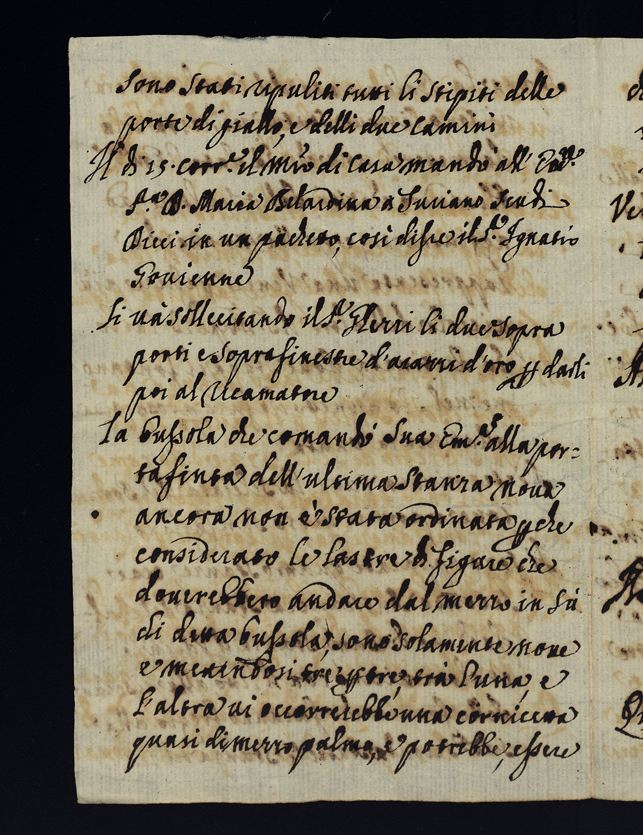 sono stati ripuliti tutti li stipiti delle
porte di giallo, e delli due camini
Il di 15. corr.e il mro di casa mandò all' Em.mo
S.ra D. Maria Belardina a Luciano Scudi
Dieci in un pachetto, così disse il S.r Ignatio
Si và sollecitando il S.r li due sopra
porti e soprafinestre d'arazzi d'oro p darli
poi al Ricamatore
La bussola che comandò Sua Em.za alla por=
ta finta dell'ultima stanza nova
ancora non è stata ordinata p che
considerato le lastre di figure che
doverebbero andare dal mezzo in sù
di detta bussola, sono solamente nove
e mettendosi tre p tre trà l'una, e
l'altra vi occorrerebbe una cornicetta
quasi di mezzo palmo, e potrebbe, essere